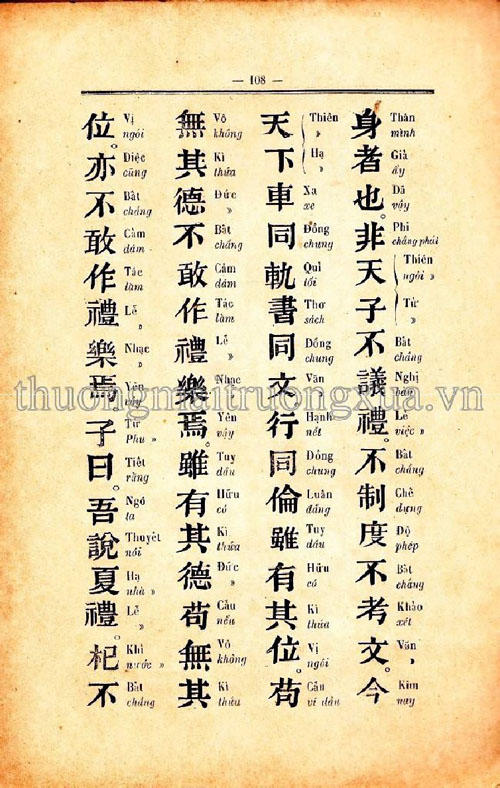 — 108 —
身者也。非天子不議禮。不制度不考文。今
Thân
mình
Giả
ấy
Dã
vậy
Phi
chẳng phải
Thiên
ngôi »
Tử
»
Bất
chẳng
Nghị
bàn
Lễ
việc »
Bất
chẳng
Chế
dựng
Độ
phép
Bất
chẳng
Khảo
xét
Văn
»
Kim
nay
天下車同軌書同文行同倫雖有其位。苟
Thiên
»
Hạ
»
Xa
xe
Đồng
chung
Quĩ
lối
Thơ
sách
Đồng
chung
Văn
Hạnh
nết
Đồng
chung
Luân
đấng
Tuy
dầu
Hữu
có
Kì
thửa
Vị
ngôi
Cẩu
ví dầu
無其德不敢作禮樂焉。雖有其德苟無其
Vô
không
Kì
thửa
Đức
»
Bất
chẳng
Cảm
dám
Tác
làm
Lễ
»
Nhạc
Yên
vậy
Tuy
dầu
Hữu
có
Kì
thửa
Đức
»
Cẩu
nếu
Vô
không
Kì
thửa
位。亦不敢作禮樂焉。子曰。吾說夏禮。杞不
Vị
ngôi
Diệc
cũng
Bất
chẳng
Cảm
dám
Tác
làm
Lễ
»
Nhạc
»
Yên
Tử
Phu »
Tiết
rằng
Ngô
ta
Thuyết
nói
Hạ
nhà »
Lễ
»
Khỉ
nước »
Bất
chẳng
thuongmaitruongxua.vn